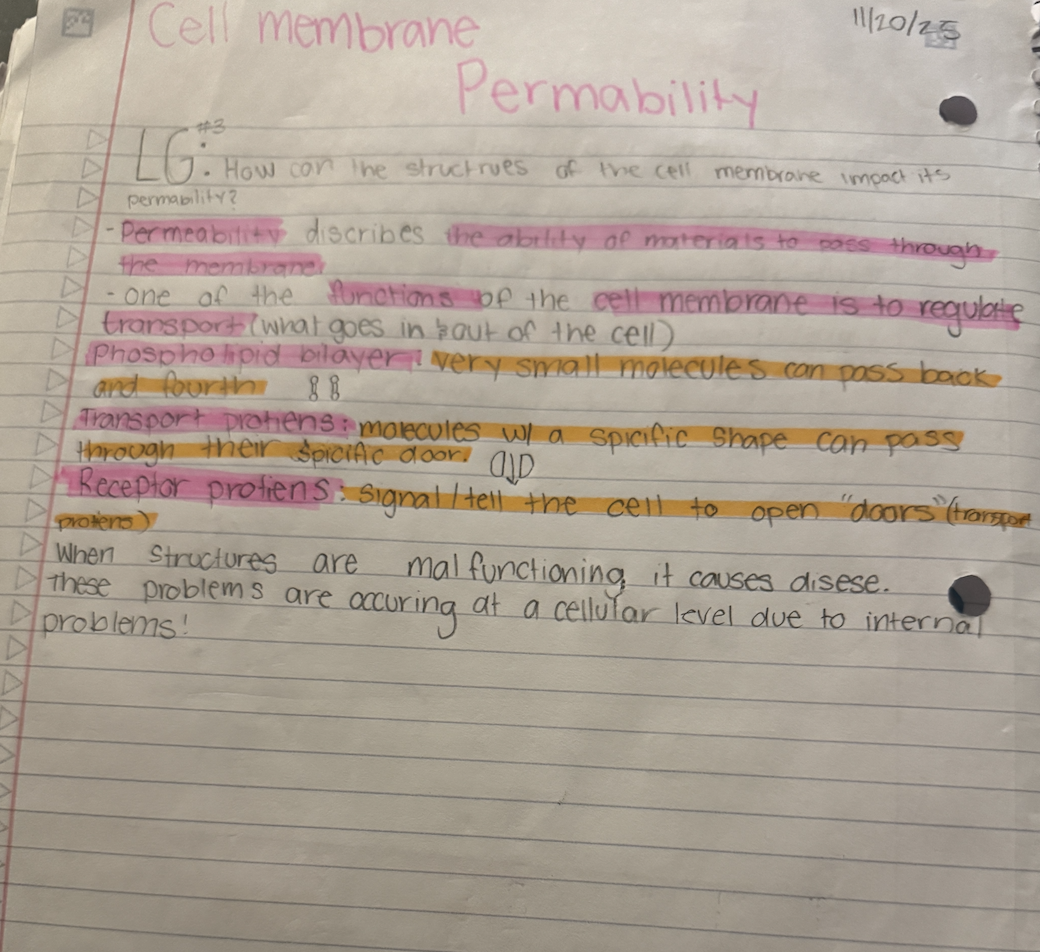 Cell membrane
11/20/25
Permability
LG #3: How can the structrues of the cell membrane impact its
permability?
- Permeability discribes the ability of materials to pass through
the membrane
- one of the functions of the cell membrane is to regulate
transport (what goes in & out of the cell)
Phospholipid bilayer: very small molecules can pass back
and fourth
Transport protiens: molecules w/ a spicific shape can pass
through their spicific door.
Receptor protiens: signal/tell the cell to open "doors" (transport
protiens)
When structures are malfunctioning, it causes disese.
These problems are occuring at a cellular level due to internal
problems!